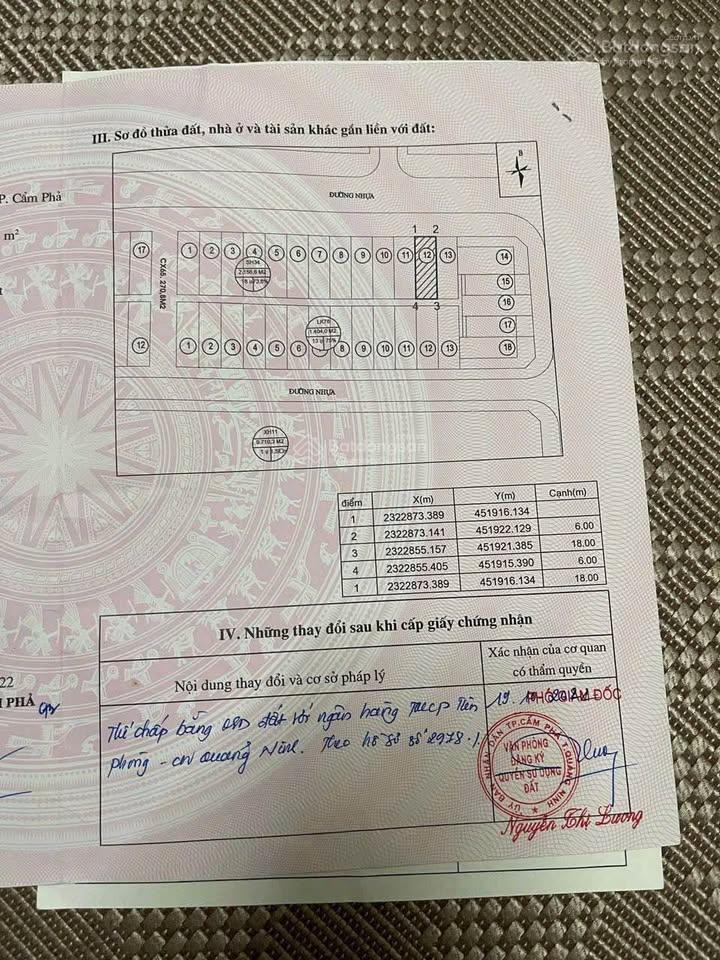 Batdongsan
by PropertyGuru
III. Sơ đồ thửa đất, nhà ở và tài sản khác gắn liền với đất:
P. Cẩm Phả
m²
B
ĐƯỜNG NHỰA
1 2
17 1 2 3 4 5 6 7 8 9 10 11 12 13 14
SH34
CX65. 270,8M2
15
16
4 3
LK76
1.404,0 M2
17
12 1 2 3 4 5 6 8 9 10 11 12 13 18
ĐƯỜNG NHỰA
XH11
điểm X(m) Y(m) Cạnh(m)
1 2322873.389 451916.134
6.00
2 2322873.141 451922.129
18.00
3 2322855.157 451921.385
6.00
4 2322855.405 451915.390
18.00
1 2322873.389 451916.134
IV. Những thay đổi sau khi cấp giấy chứng nhận
Nội dung thay đổi và cơ sở pháp lý
Xác nhận của cơ quan
có thẩm quyền
22
I PHẢ
PHÓ GIÁM ĐỐC
Thế chấp bằng đất với ngân hàng TMCP Tiên
Phong - CN Quảng Ninh. Theo hồ sơ số 2978
ỦY BAN NHÂN DÂN TP.CẨM PHẢ T.QUẢNG NINH
VĂN PHÒNG
ĐĂNG KÝ
QUYỀN SỬ DỤNG
ĐẤT
Nguyễn Thị Lương